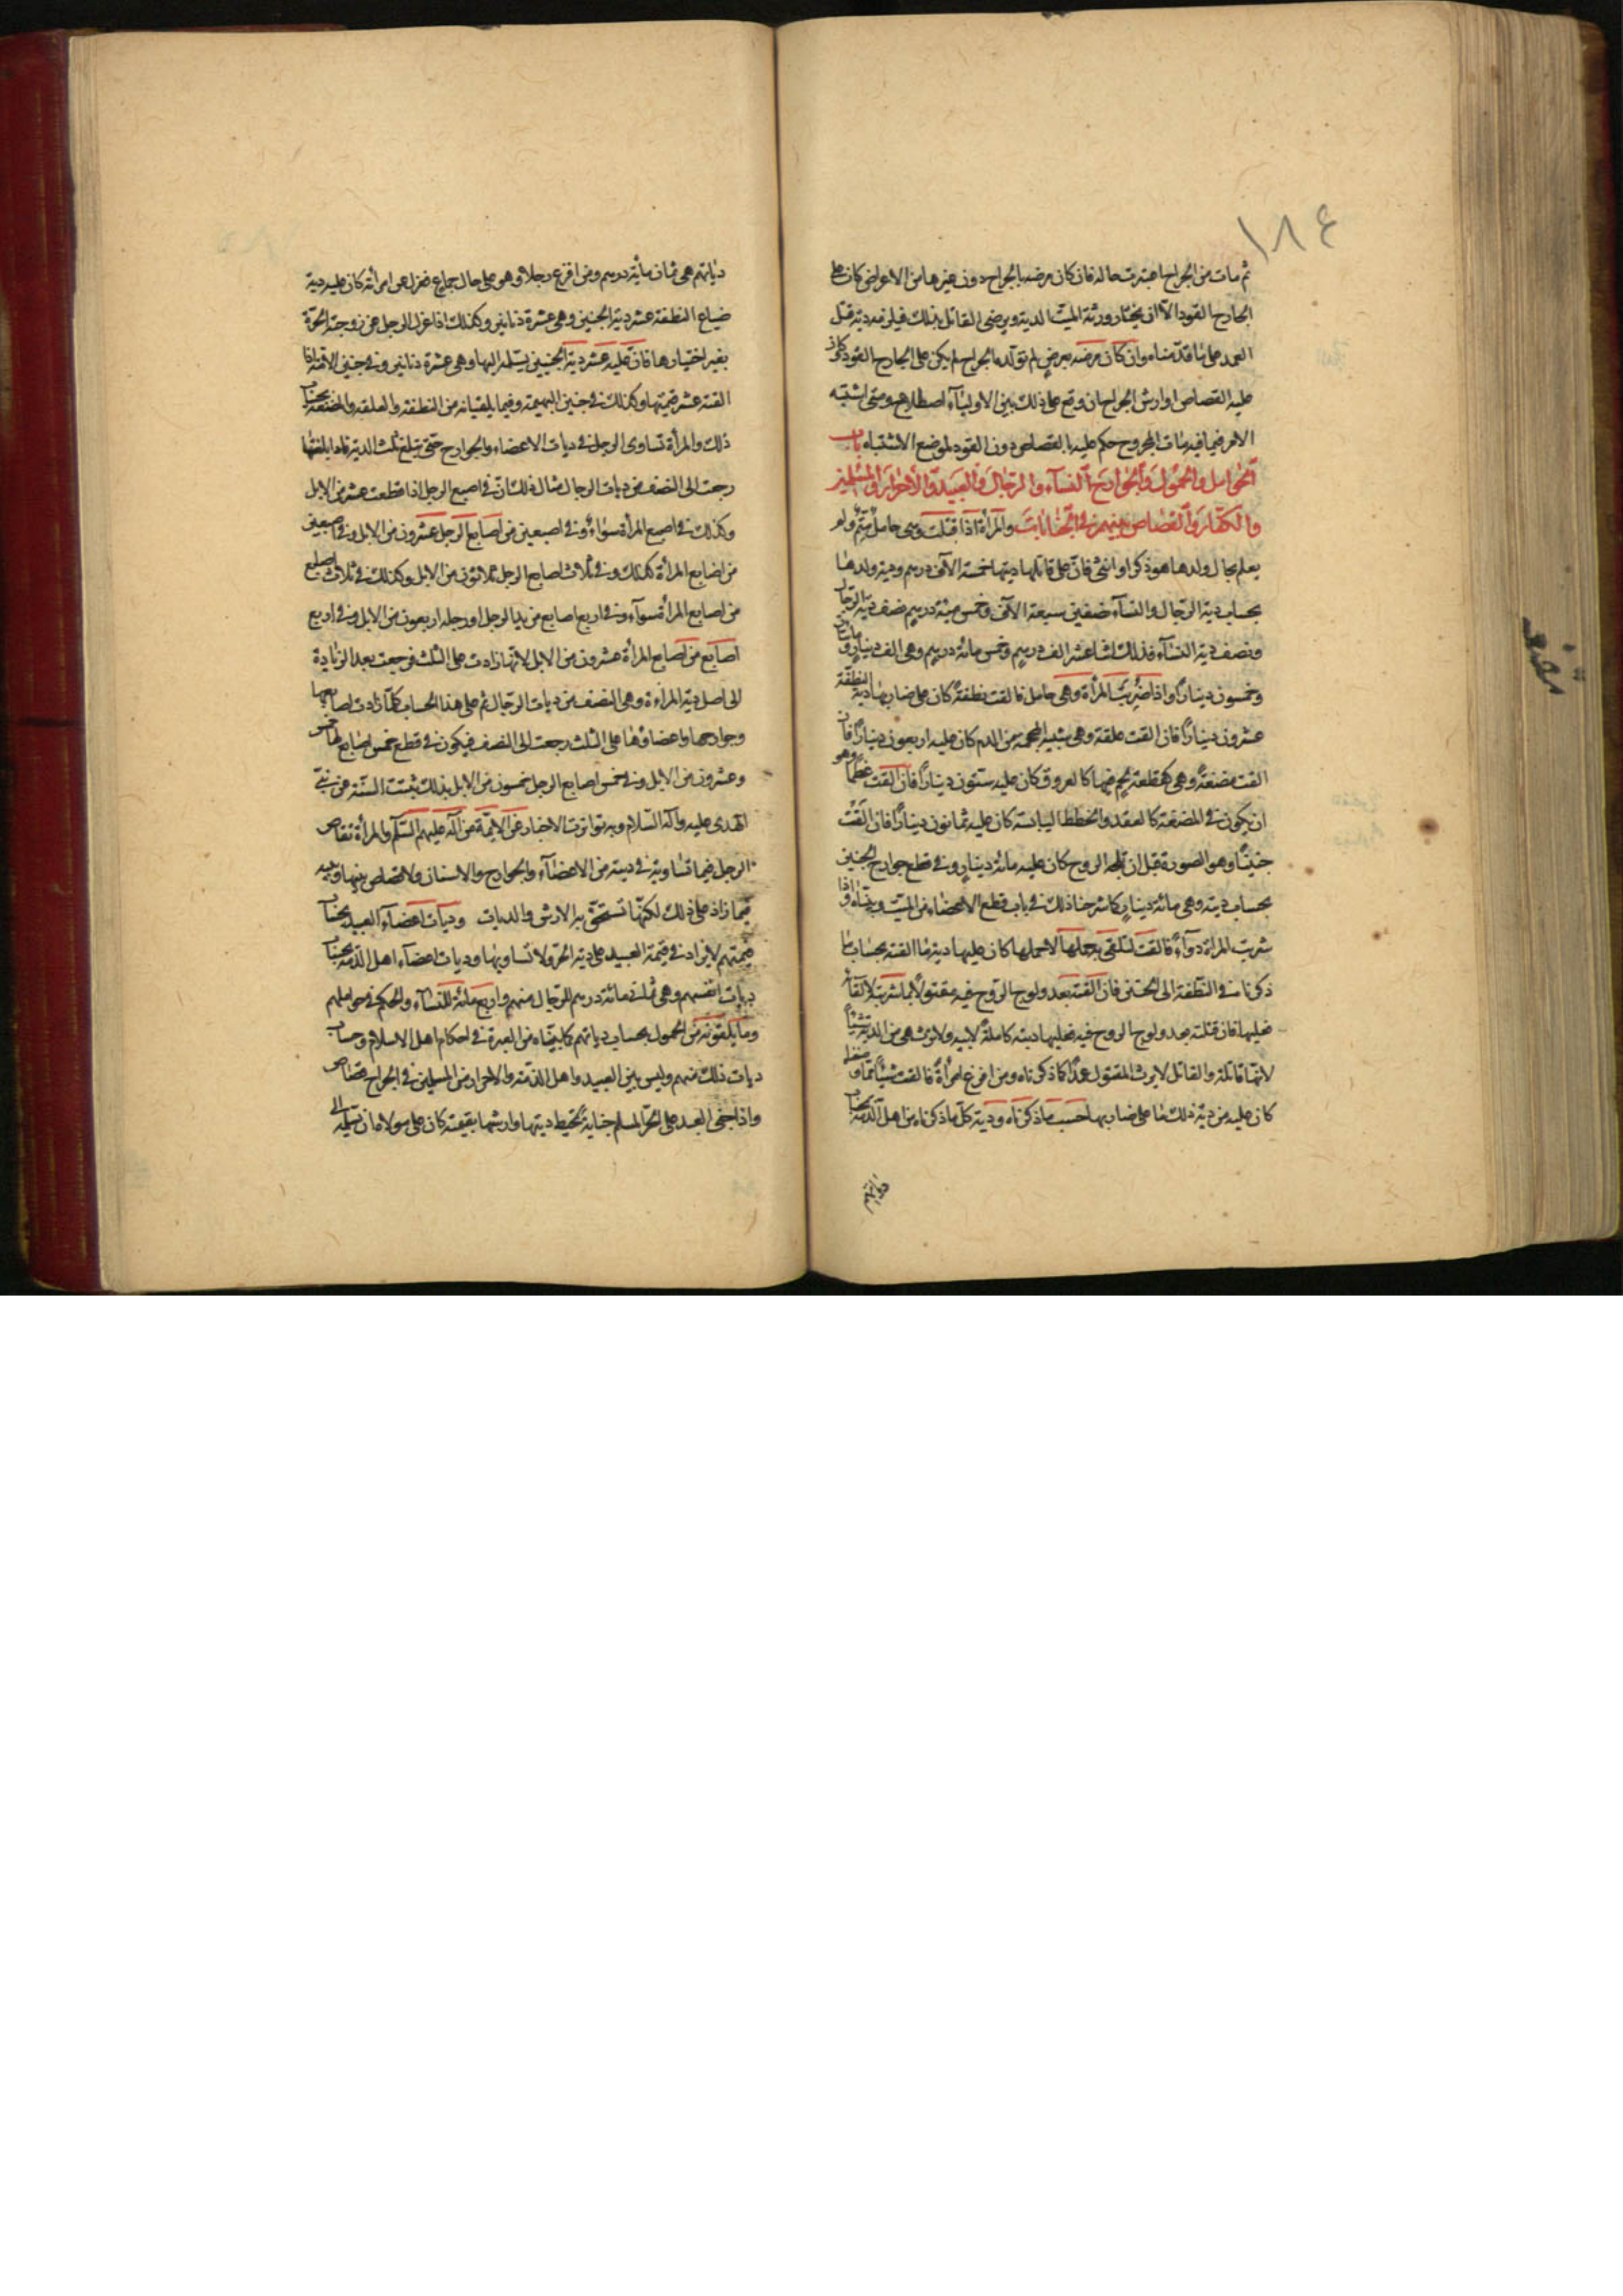 ١٨٤
ثم مات من الجراح اعتبرت حاله فان كان مرضه بالجراح دون غيرها من الاعراض كان على
الجارح القود الا ان يختار ورثة الميت الدية ويرضى القاتل بذلك فيلزمه دية قتل
العمد على ما قدمناه وان كان مرضه بمرض لم تولده الجراح لم يكن على الجارح القود وكان
عليه القصاص او ارش الجراح ان وقع على ذلك بين الاولياء اصطلاح ومتى اشتبه
الامر فيما فيه مات المجروح حكم عليه بالقصاص دون القود لموضع الاشتباه باب
الحوامل والحمول والجوارح النساء والرجال والعبيد والاحرار والمسلمين
والكفار والقصاص بينهم في الجنايات والمرأة اذا قتلت وهي حامل متم ولم
يعلم بحال ولدها هو ذكر او انثى فان على قاتلها ديتها خمسة الآف درهم ودية ولدها
بحساب دية الرجال والنساء نصفين سبعة الآف وخمس مئة درهم نصف دية الرجال
ونصف دية النساء فذلك اثنا عشر الف درهم وخمس مائة درهم وهي الف دينار ومائتان
وخمسون دينارا واذا ضربت المرأة وهي حامل فالقت نطفة كان على ضاربها دية النطفة
عشرون دينارا فان القت علقة وهي شبيه المحجمة من الدم كان عليه اربعون دينارا فان
القت مضغة وهي كقطعة لحم فيها كالعروق كان عليه ستون دينارا فان القت عظما وهو
ان يكون في المضغة كالعقد والخطط اليابسة كان عليه ثمانون دينارا فان القت
جنينا وهو الصورة قبل ان تلجه الروح كان عليه مائة دينار وفي قطع جوارح الجنين
بحساب ديته وهي مائة دينار كما شرحنا ذلك في باب قطع الاعضاء من الميت وبيناه واذا
شربت المرأة دواء فالقت لتلقى به حملها لاحملها كان عليها دية ما القته بحساب ما
ذكرناه في النطفة الى الجنين فان القته بعد ولوج الروح فيه مقتولا بما شربت لالقائه
فعليها فان قتلته بعد ولوج الروح فيه فعليها ديته كاملة لابيه ولا ترث هي من الدية شيئا
لانها قاتلة والقاتل لا يرث المقتول عمدا كما ذكرناه ومن افزع امرأة فالقت شيئا مما
كان عليه من دية ذلك ما على ضاربها حسب ما ذكرناه ودية كل ما ذكرناه من اهل الذمة بحساب
دياتهم
دياتهم هي ثمان مأية درهم ومن افزع رجلا وهو على حال جماع فعزل عن امرأته كان عليه دية
ضياع النطفة عشر دية الجنين وهي عشرة دنانير وكذلك اذا عزل الرجل عن زوجته الحرة
بغير اختيارها فان عليه عشر دية الجنين يسلم اليها وهي عشرة دنانير وفي جنين الامة اذا
القته عشر قيمتها وكذلك في جنين البهيمة وفيما يلقيانه من النطفة والعلقة والمضغة بحساب
ذلك والمرأة تساوى الرجل في ديات الاعضاء والجوارح حتى تبلغ ثلث الدية فاذا بلغتها
رجعت الى النصف من ديات الرجال مثال ذلك ان في اصبع الرجل اذا قطعت عشر من الابل
وكذلك في اصبع المرأة سواء وفي اصبعين من اصابع الرجل عشرون من الابل وفي اصبعين
من اصابع المرأة كذلك وفي ثلاث اصابع الرجل ثلاثون من الابل وكذلك في ثلاث اصابع
من اصابع المرأة سواء وفي اربع اصابع من يد الرجل او رجله اربعون من الابل وفي اربع
اصابع من اصابع المرأة عشرون من الابل لانها زادت على الثلث فرجعت بعد الزيادة
الى اصل دية المراءة وهي النصف من ديات الرجال ثم على هذا الحساب كلما زادت اصابعها
وجوارحها واعضاؤها على الثلث رجعت الى النصف فيكون في قطع خمس اصابع لها خمس
وعشرون من الابل وفي خمس اصابع الرجل خمسون من الابل بذلك ثبتت السنة عن نبي
الهدى عليه وآله السلام وبه تواترت الاخبار عن الائمة من آله عليهم السلام والمرأة تقاص
الرجل فيما تساويه في ديته من الاعضاء والجوارح والاسنان ولا قصاص بينها وبينه
فيما زاد على ذلك لكنها تستحق به الارش والديات وديات اعضاء العبيد بحساب
قيمتهم لايزاد في قيمة العبيد على دية الحر ولا تساويها وديات اعضاء اهل الذمة بحساب
ديات انفسهم وهي ثمان مائة درهم للرجال منهم واربع مائة للنساء والحكم في حواملهم
وما يلقونه من الحمول بحساب دياتهم كما بيناه من العبرة في احكام اهل الاسلام وحساب
ديات ذلك منهم وليس بين العبيد واهل الذمة والاحرار من المسلمين في الجراح قصاص
واذا جنى العبد على الحر المسلم جناية تحيط ديتها وارشها بقيمته كان على مولاه ان يسلمه الى